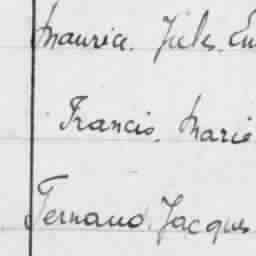 Maurice. Jules. Eu
Francis. Marie
Fernand. Jacques